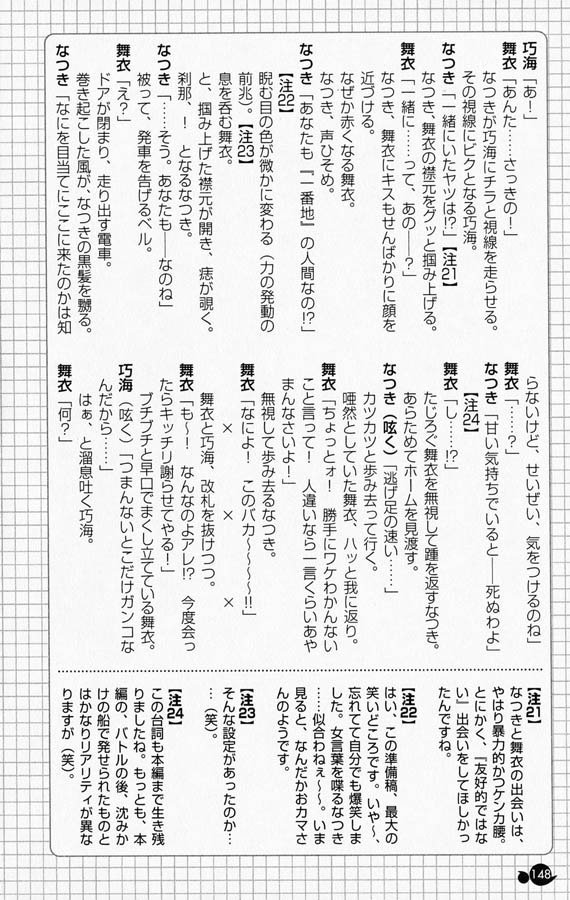 巧海「あ！」
舞衣「あんた……さっきの！」
なつきが巧海にチラと視線を走らせる。
その視線にビクとなる巧海。
なつき「一緒にいたヤツは!?」【注21】
なつき、舞衣の襟元をグッと掴み上げる。
舞衣「一緒に……って、あの――？」
なつき、舞衣にキスもせんばかりに顔を
近づける。
なぜか赤くなる舞衣。
なつき、声ひそめ。
なつき「あなたも『一番地』の人間なの!?」
【注22】
睨む目の色が微かに変わる（力の発動の
前兆）。【注23】
息を呑む舞衣。
と、掴み上げた襟元が開き、痣が覗く。
刹那、！　となるなつき。
なつき「……そう。あなたも――なのね」
被って、発車を告げるベル。
舞衣「え？」
ドアが閉まり、走り出す電車。
巻き起こした風が、なつきの黒髪を嬲る。
なつき「なにを目当てにここに来たのかは知
らないけど、せいぜい、気をつけるのね」
舞衣「……？」
なつき「甘い気持ちでいると――死ぬわよ」
【注24】
舞衣「し……!?」
たじろぐ舞衣を無視して踵を返すなつき。
あらためてホームを見渡す。
なつき（呟く）「逃げ足の速い……」
カツカツと歩み去って行く。
唖然としていた舞衣、ハッと我に返り。
舞衣「ちょっとォ！　勝手にワケわかんない
こと言って！　人違いなら一言くらいあや
まんなさいよ！」
無視して歩み去るなつき。
舞衣「なによ！　このバカ〜〜〜〜!!」
×　　×　　×
舞衣と巧海、改札を抜けつつ。
舞衣「も〜！　なんなのよアレ!?　今度会っ
たらキッチリ謝らせてやる！」
ブチブチと早口でまくし立てている舞衣。
巧海（呟く）「つまんないとこだけガンコな
んだから……」
はぁ、と溜息吐く巧海。
舞衣「何？」
【注21】
なつきと舞衣の出会いは、
やはり暴力的かつケンカ腰。
とにかく、『友好的ではな
い』出会いをしてほしかっ
たんですね。
【注22】
はい、この準備稿、最大の
笑いどころです。いや〜、
忘れてて自分でも爆笑しま
した。女言葉を喋るなつき
……似合わねぇ〜〜。いま
見ると、なんだかおカマさ
んのようです。
【注23】
そんな設定があったのか…
…（笑）。
【注24】
この台詞も本編まで生き残
りましたね。もっとも、本
編の、バトルの後、沈みか
けの船で発せられたものと
はかなりリアリティが異な
りますが（笑）。
148